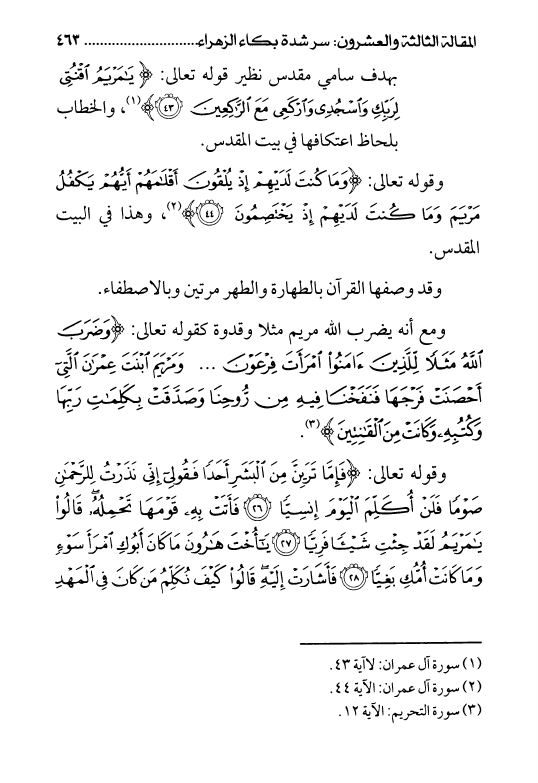 المقالة الثالثة والعشرون: سر شدة بكاء الزهراء ............................. ٤٦٣
بهدف سامي مقدس نظير قوله تعالى: ﴿ يَٰمَرۡيَمُ ٱقۡنُتِي
لِرَبِّكِ وَٱسۡجُدِي وَٱرۡكَعِي مَعَ ٱلرَّٰكِعِينَ ٤٣ ﴾(١)، والخطاب
بلحاظ اعتكافها في بيت المقدس.
وقوله تعالى: ﴿وَمَا كُنتَ لَدَيۡهِمۡ إِذۡ يُلۡقُونَ أَقۡلَٰمَهُمۡ أَيُّهُمۡ يَكۡفُلُ
مَرۡيَمَ وَمَا كُنتَ لَدَيۡهِمۡ إِذۡ يَخۡتَصِمُونَ ٤٤ ﴾(٢)، وهذا في البيت
المقدس.
وقد وصفها القرآن بالطهارة والطهر مرتين وبالاصطفاء.
ومع أنه يضرب الله مريم مثلا وقدوة كقوله تعالى: ﴿وَضَرَبَ
ٱللَّهُ مَثَلٗا لِّلَّذِينَ ءَامَنُواْ ٱمۡرَأَتَ فِرۡعَوۡنَ ... وَمَرۡيَمَ ٱبۡنَتَ عِمۡرَٰنَ ٱلَّتِيٓ
أَحۡصَنَتۡ فَرۡجَهَا فَنَفَخۡنَا فِيهِ مِن رُّوحِنَا وَصَدَّقَتۡ بِكَلِمَٰتِ رَبِّهَا
وَكُتُبِهِۦ وَكَانَتۡ مِنَ ٱلۡقَٰنِتِينَ ﴾(٣).
وقوله تعالى: ﴿فَإِمَّا تَرَيِنَّ مِنَ ٱلۡبَشَرِ أَحَدٗا فَقُولِيٓ إِنِّي نَذَرۡتُ لِلرَّحۡمَٰنِ
صَوۡمٗا فَلَنۡ أُكَلِّمَ ٱلۡيَوۡمَ إِنسِيّٗا ٢٦ فَأَتَتۡ بِهِۦ قَوۡمَهَا تَحۡمِلُهُۥۖ قَالُواْ
يَٰمَرۡيَمُ لَقَدۡ جِئۡتِ شَيۡـٔٗا فَرِيّٗا ٢٧ يَٰٓأُخۡتَ هَٰرُونَ مَا كَانَ أَبُوكِ ٱمۡرَأَ سَوۡءٖ
وَمَا كَانَتۡ أُمُّكِ بَغِيّٗا ٢٨ فَأَشَارَتۡ إِلَيۡهِۖ قَالُواْ كَيۡفَ نُكَلِّمُ مَن كَانَ فِي ٱلۡمَهۡدِ
(١) سورة آل عمران: لاآية ٤٣.
(٢) سورة آل عمران: الآية ٤٤.
(٣) سورة التحريم: الآية ١٢.